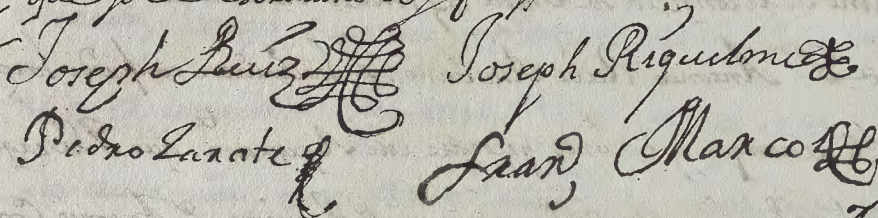 Joseph Ruiz Joseph Riquelme
Pedro Zarate Fran^co Marco